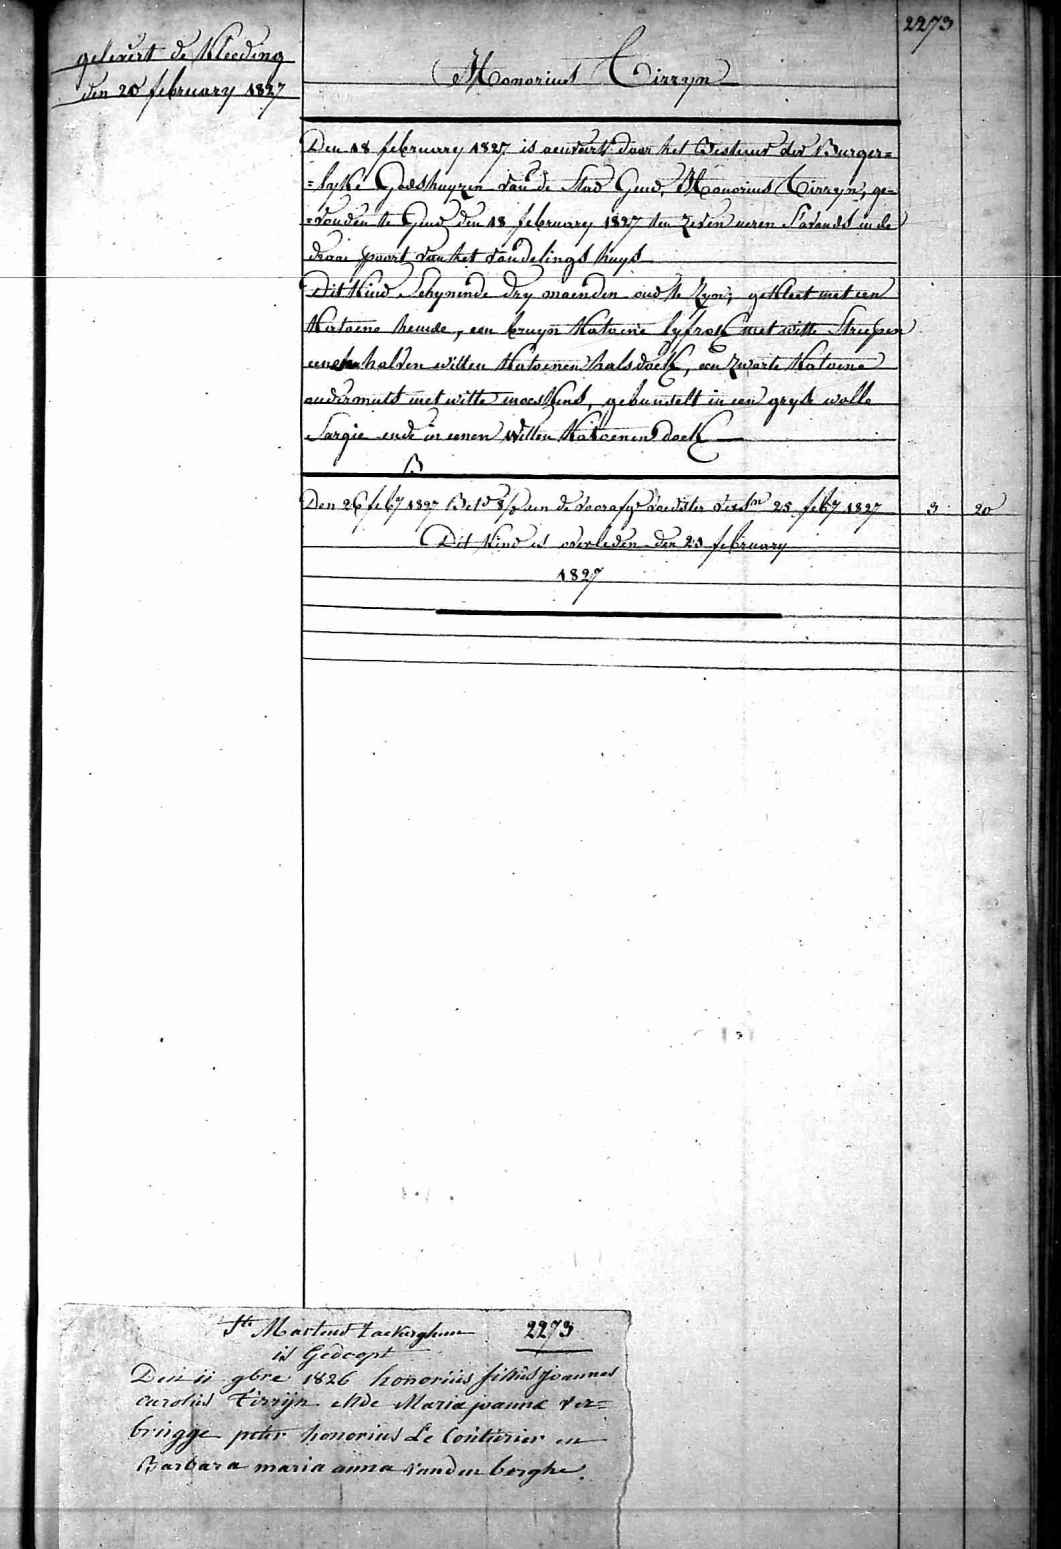 2273
gelevert de Kleeding
den 20 february 1827
Honorius Tirryn
Den 18 february 1827 is aenveert door het Bestuur der Burger=
=lyke Godshuyzen van de Stad Gend, Honorius Tirryn, ge=
=vonden te Gend den 18 february 1827 ten zeven ueren s'avonds in de
draai poort van het vondelings huys
Dit Kind schynende dry maenden oud te zyn, gekleet met een
Kattoene hemde, een bruyn Kattoene lyfrok met witte streepen
eenen halven witten Kattoenen halsdoek, een zwarte Katoene
ondermuts met witte moeskens, gebunselt in een gryse wolle
Sargie ende in eenen witten Kattoenen doek
B
Den 26 feby 1827 Betd aen de voorafge voedster versn 25 feby 1827 3 20
Dit Kind is overleden den 23 february
1827
Ste Martens Eackerghem 2273
is Gedoopt
Den 11 9bre 1826 honorius filius joannes
carolus Tirrijn ende Maria joanna ver=
brugge peter honorius Le Couturier en
Barbara maria anna vanden berghe.